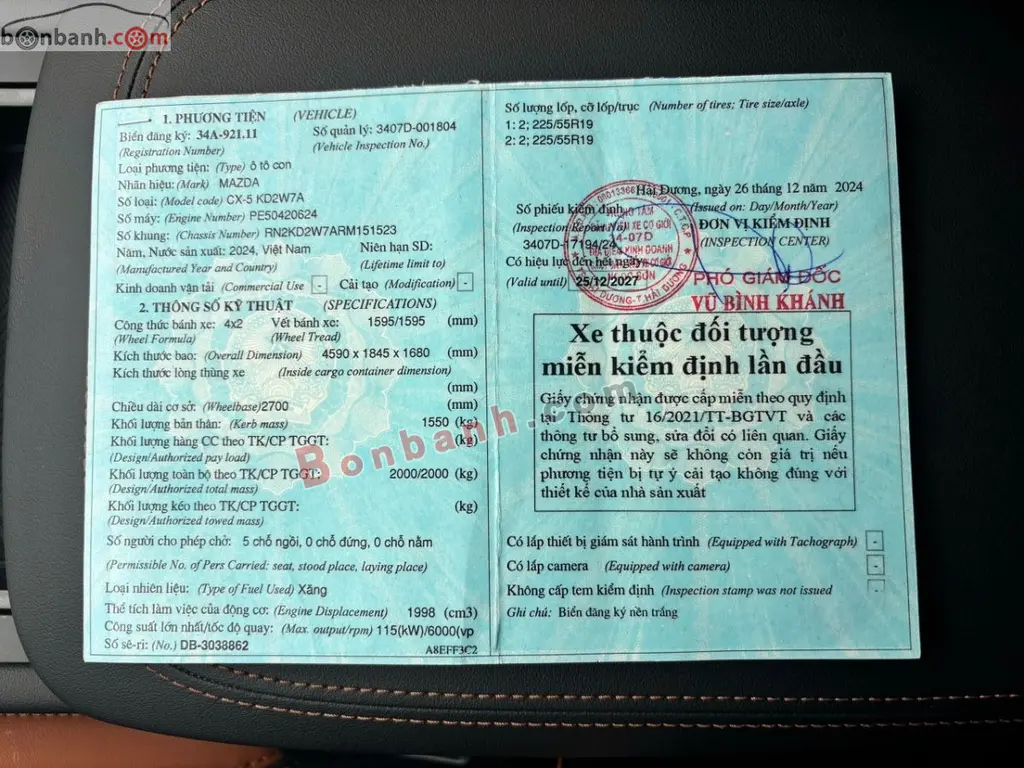 bonbanh.com
1. PHƯƠNG TIỆN (VEHICLE)
Biển đăng ký: 34A-921.11 Số quản lý: 3407D-001804
(Registration Number) (Vehicle Inspection No.)
Loại phương tiện: (Type) ô tô con
Nhãn hiệu: (Mark) MAZDA
Số loại: (Model code) CX-5 KD2W7A
Số máy: (Engine Number) PE50420624
Số khung: (Chassis Number) RN2KD2W7ARM151523
Năm, Nước sản xuất: 2024, Việt Nam Niên hạn SD:
(Manufactured Year and Country) (Lifetime limit to)
Kinh doanh vận tải (Commercial Use - Cải tạo (Modification) -
2. THÔNG SỐ KỸ THUẬT (SPECIFICATIONS)
Công thức bánh xe: 4x2 Vết bánh xe: 1595/1595 (mm)
(Wheel Formula) (Wheel Tread)
Kích thước bao: (Overall Dimension) 4590 x 1845 x 1680 (mm)
Kích thước lòng thùng xe (Inside cargo container dimension)
(mm)
Chiều dài cơ sở: (Wheelbase) 2700 (mm)
Khối lượng bản thân: (Kerb mass) 1550 (kg)
Khối lượng hàng CC theo TK/CP TGGT: (kg)
(Design/Authorized pay load)
Khối lượng toàn bộ theo TK/CP TGGT: 2000/2000 (kg)
(Design/Authorized total mass)
Khối lượng kéo theo TK/CP TGGT: (kg)
(Design/Authorized towed mass)
Số người cho phép chở: 5 chỗ ngồi, 0 chỗ đứng, 0 chỗ nằm
(Permissible No. of Pers Carried: seat, stood place, laying place)
Loại nhiên liệu: (Type of Fuel Used) Xăng
Thể tích làm việc của động cơ: (Engine Displacement) 1998 (cm3)
Công suất lớn nhất/tốc độ quay: (Max. output/rpm) 115(kW)/6000(vp
Số sê-ri: (No.) DB-3038862
A8EFF3C2
Số lượng lốp, cỡ lốp/trục (Number of tires; Tire size/axle)
1: 2; 225/55R19
2: 2; 225/55R19
Hải Dương, ngày 26 tháng 12 năm 2024
Số phiếu kiểm định (Issued on: Day/Month/Year)
(Inspection Report No) ĐƠN VỊ KIỂM ĐỊNH
3407D-17194/24 (INSPECTION CENTER)
Có hiệu lực đến hết ngày
(Valid until) 25/12/2027
PHÓ GIÁM ĐỐC
VŨ BÌNH KHÁNH
Xe thuộc đối tượng
miễn kiểm định lần đầu
Giấy chứng nhận được cấp miễn theo quy định
tại Thông tư 16/2021/TT-BGTVT và các
thông tư bổ sung, sửa đổi có liên quan. Giấy
chứng nhận này sẽ không còn giá trị nếu
phương tiện bị tự ý cải tạo không đúng với
thiết kế của nhà sản xuất
Có lắp thiết bị giám sát hành trình (Equipped with Tachograph) -
Có lắp camera (Equipped with camera) -
Không cấp tem kiểm định (Inspection stamp was not issued -
Ghi chú: Biển đăng ký nền trắng
Bonbanh.com